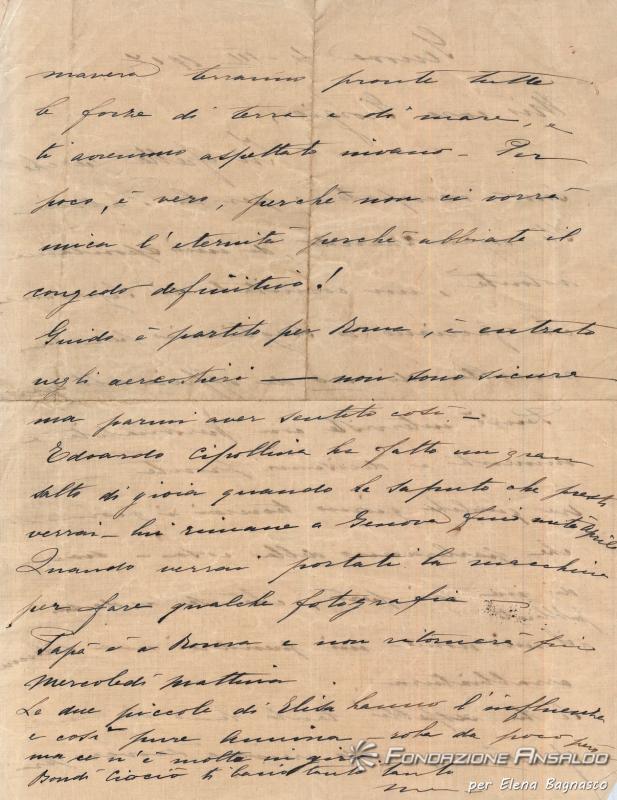 mavera terranno pronte tutte
le forze di terra e di mare, e
ti avremmo aspettato invano – Per
poco, è vero, perchè non ci vorrà
mica l'eternità perchè abbiate il
congedo definitivo!
Guido è partito per Roma, è entrato
negli aerostieri — non sono sicura
ma parmi aver sentito così –
Edoardo Cipollina ha fatto un gran
salto di gioia quando ha saputo che presto
verrai – lui rimane a Genova fino Aprile
Quando verrai portati la macchina
per fare qualche fotografia
Papà è a Roma e non ritornerà fino
Mercoledì mattina
Le due piccole di Elisa hanno l'influenza
e così pure Annina roba da poco però
ma ce n'è molta in giro
tanto tanto
FONDAZIONE ANSALDO
per Elena Bagnasco